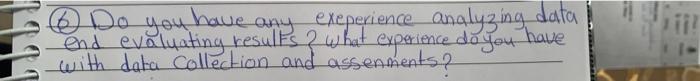 ⑥ Do you have any exeperience analyzing data
end evaluating results? what experience do you have
with data collection and assenments?